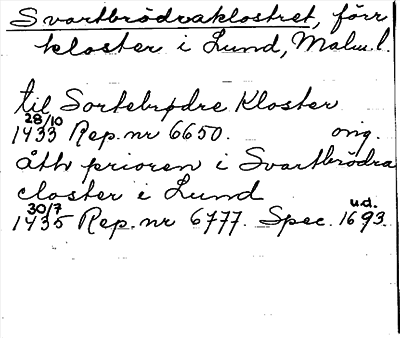 Svartbrödraklostret, förr
kloster i Lund, Malm. l.
til Sortebrødre Kloster
28/10
1433 Rep. nr 6650. orig.
åth prioren i Svartbrödra
closter i Lund
30/7 u.d.
1435 Rep. nr 6777. Spec. 1693.